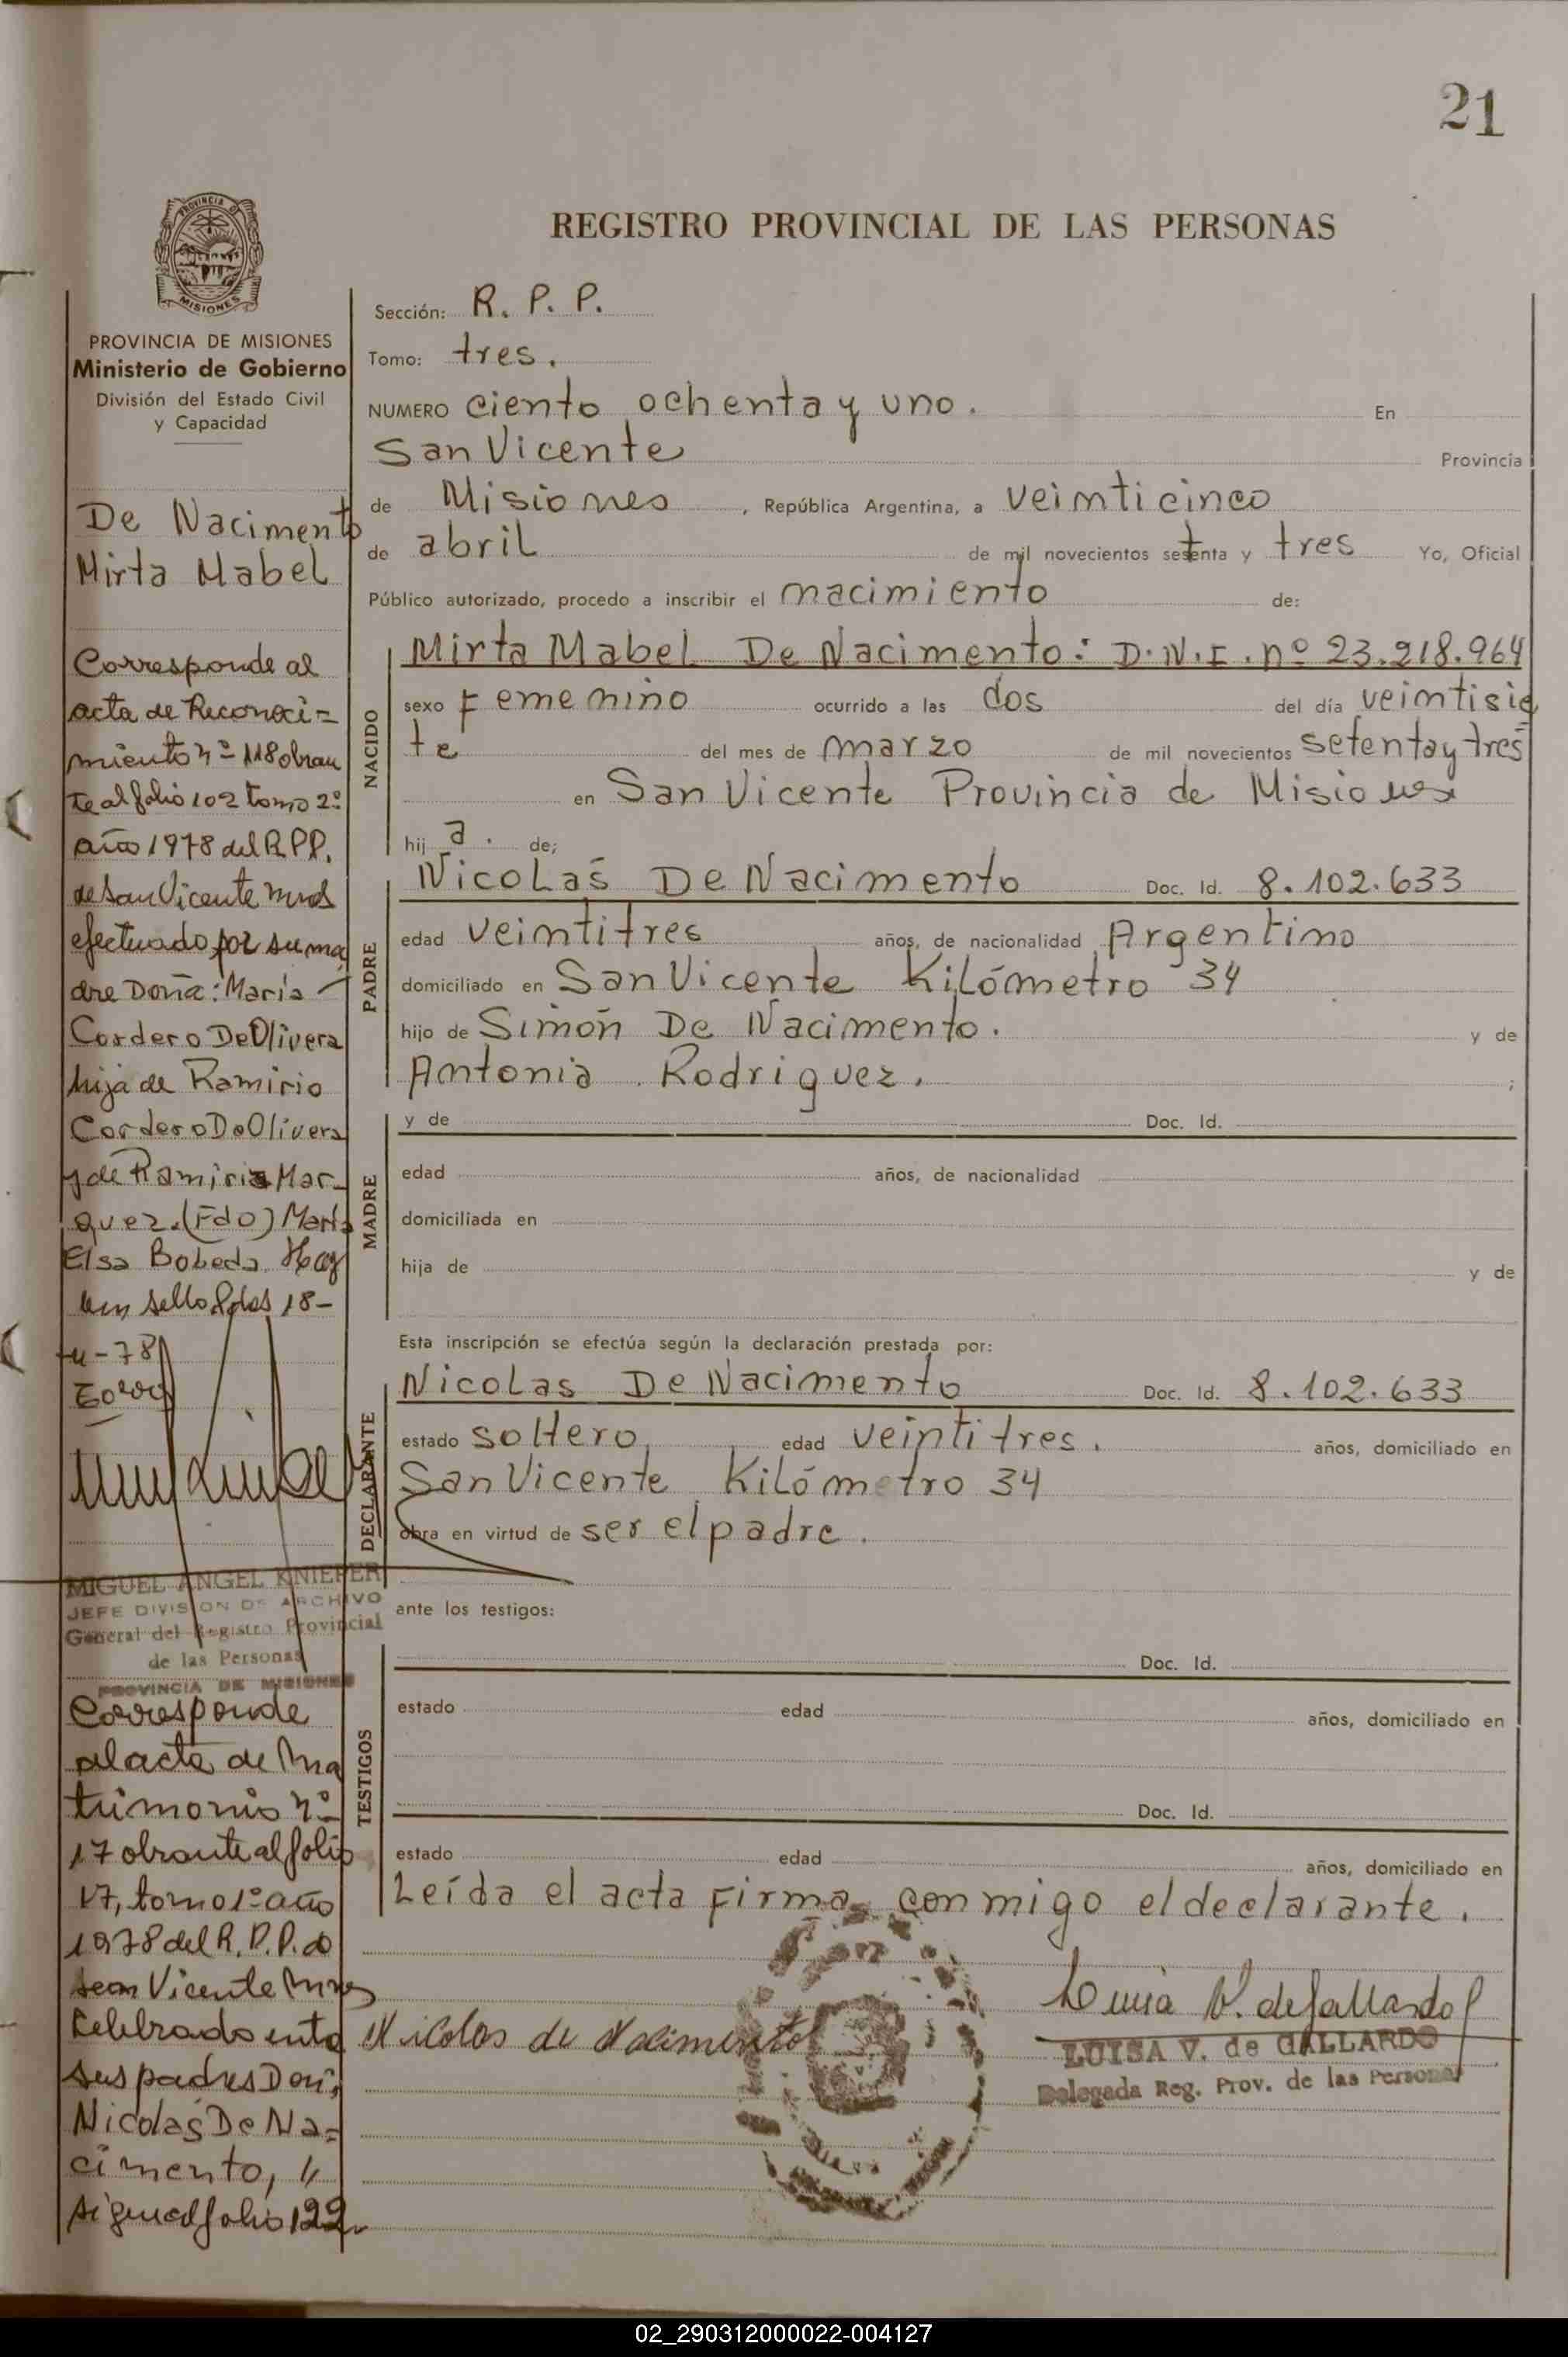 21
PROVINCIA DE
MISIONES
REGISTRO PROVINCIAL DE LAS PERSONAS
PROVINCIA DE MISIONES
Ministerio de Gobierno
División del Estado Civil
y Capacidad
De Nacimento
Mirta Mabel
Corresponde al
acta de Reconoci=
miento nº 118 obran
te al folio 102 tomo 2º
año 1978 del R.P.P.
de San Vicente Mnes
efectuado por su ma
dre Doña: María
Cordero De Olivera
hija de Ramirio
Cordero De Olivera
y de Ramiria Mar-
quez. (Fdo) María
Elsa Bobeda Hay
un sello Pdas 18-
-78
MIGUEL ANGEL KNIEPER
JEFE DIVISION DE ARCHIVO
General del Registro Provincial
de las Personas
PROVINCIA DE MISIONES
Corresponde
al acta de Ma
trimonio nº
17 obrante al folio
17, tomo 1º año
1978 del R.P.P. de
San Vicente Mnes
Celebrado entre
sus padres Don:
Nicolás De Na=
cimento, //
sigue al folio 122
Sección: R. P. P.
Tomo: tres.
NUMERO ciento ochenta y uno. En
San Vicente Provincia
de Misiones, República Argentina, a veinticinco
de abril de mil novecientos setenta y tres Yo, Oficial
Público autorizado, procedo a inscribir el nacimiento de:
NACIDO
Mirta Mabel De Nacimento: D.N.I. nº 23.218.964
sexo Femenino ocurrido a las dos del día veintisie
te del mes de marzo de mil novecientos setenta y tres
en San Vicente Provincia de Misiones
hij a. de;
PADRE
Nicolás De Nacimento Doc. Id. 8.102.633
edad veintitres años, de nacionalidad Argentino
domiciliado en San Vicente Kilómetro 34
hijo de Simón De Nacimento. y de
Antonia Rodriguez. ;
MADRE
y de Doc. Id.
edad años, de nacionalidad
domiciliada en
hija de y de
Esta inscripción se efectúa según la declaración prestada por:
DECLARANTE
Nicolas De Nacimento Doc. Id. 8.102.633
estado soltero, edad veintitres. años, domiciliado en
San Vicente Kilómetro 34
obra en virtud de ser el padre.
ante los testigos:
TESTIGOS
Doc. Id.
estado edad años, domiciliado en
Doc. Id.
estado edad años, domiciliado en
Leída el acta firma conmigo el declarante.
Nicolas de Nacimento
Luisa V. de Gallardo
LUISA V. de GALLARDO
Delegada Reg. Prov. de las Personas
02_290312000022-004127